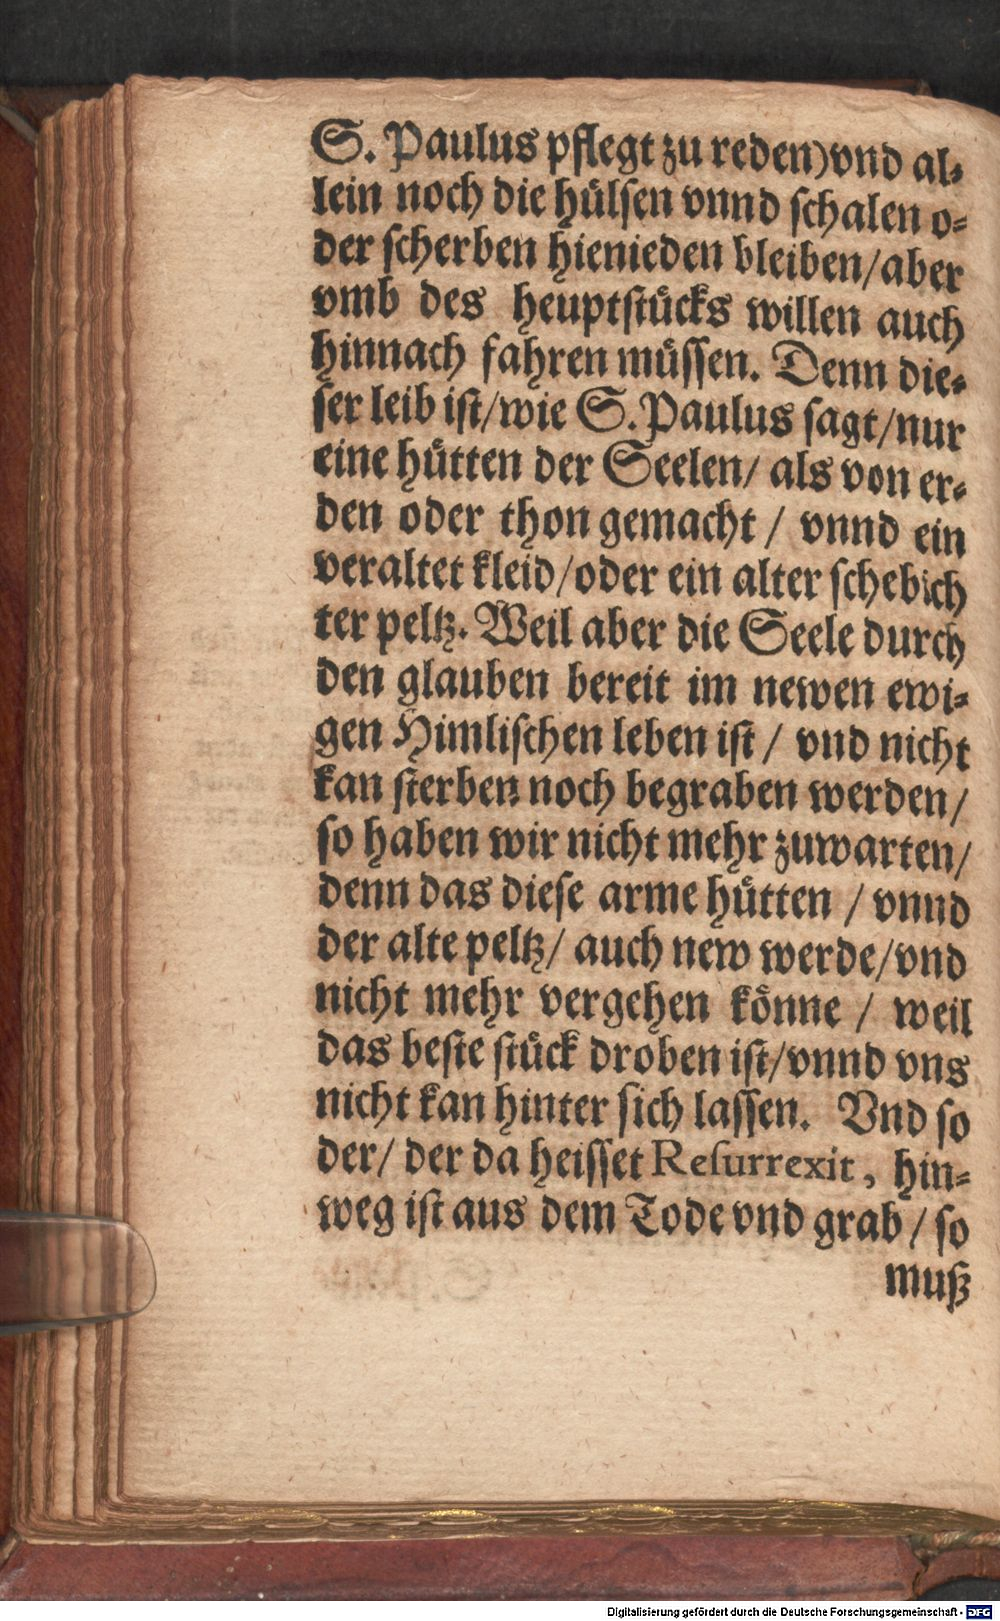 S. Paulus pflegt zu reden) vnd al-
lein noch die hülsen vnnd schalen o-
der scherben hienieden bleiben/aber
vmb des heuptstücks willen auch
hinnach fahren müssen. Denn die-
ser leib ist/wie S. Paulus sagt/nur
eine hütten der Seelen/ als von er-
den oder thon gemacht / vnnd ein
veraltet kleid/oder ein alter schebich
ter peltz. Weil aber die Seele durch
den glauben bereit im newen ewi-
gen Himlischen leben ist / vnd nicht
kan sterben noch begraben werden/
so haben wir nicht mehr zuwarten/
denn das diese arme hütten / vnnd
der alte peltz/ auch new werde/vnd
nicht mehr vergehen könne / weil
das beste stück droben ist/vnnd vns
nicht kan hinter sich lassen. Vnd so
der/ der da heisset Resurrexit, hin-
weg ist aus dem Tode vnd grab / so
muß
Digitalisierung gefördert durch die Deutsche Forschungsgemeinschaft - DFG